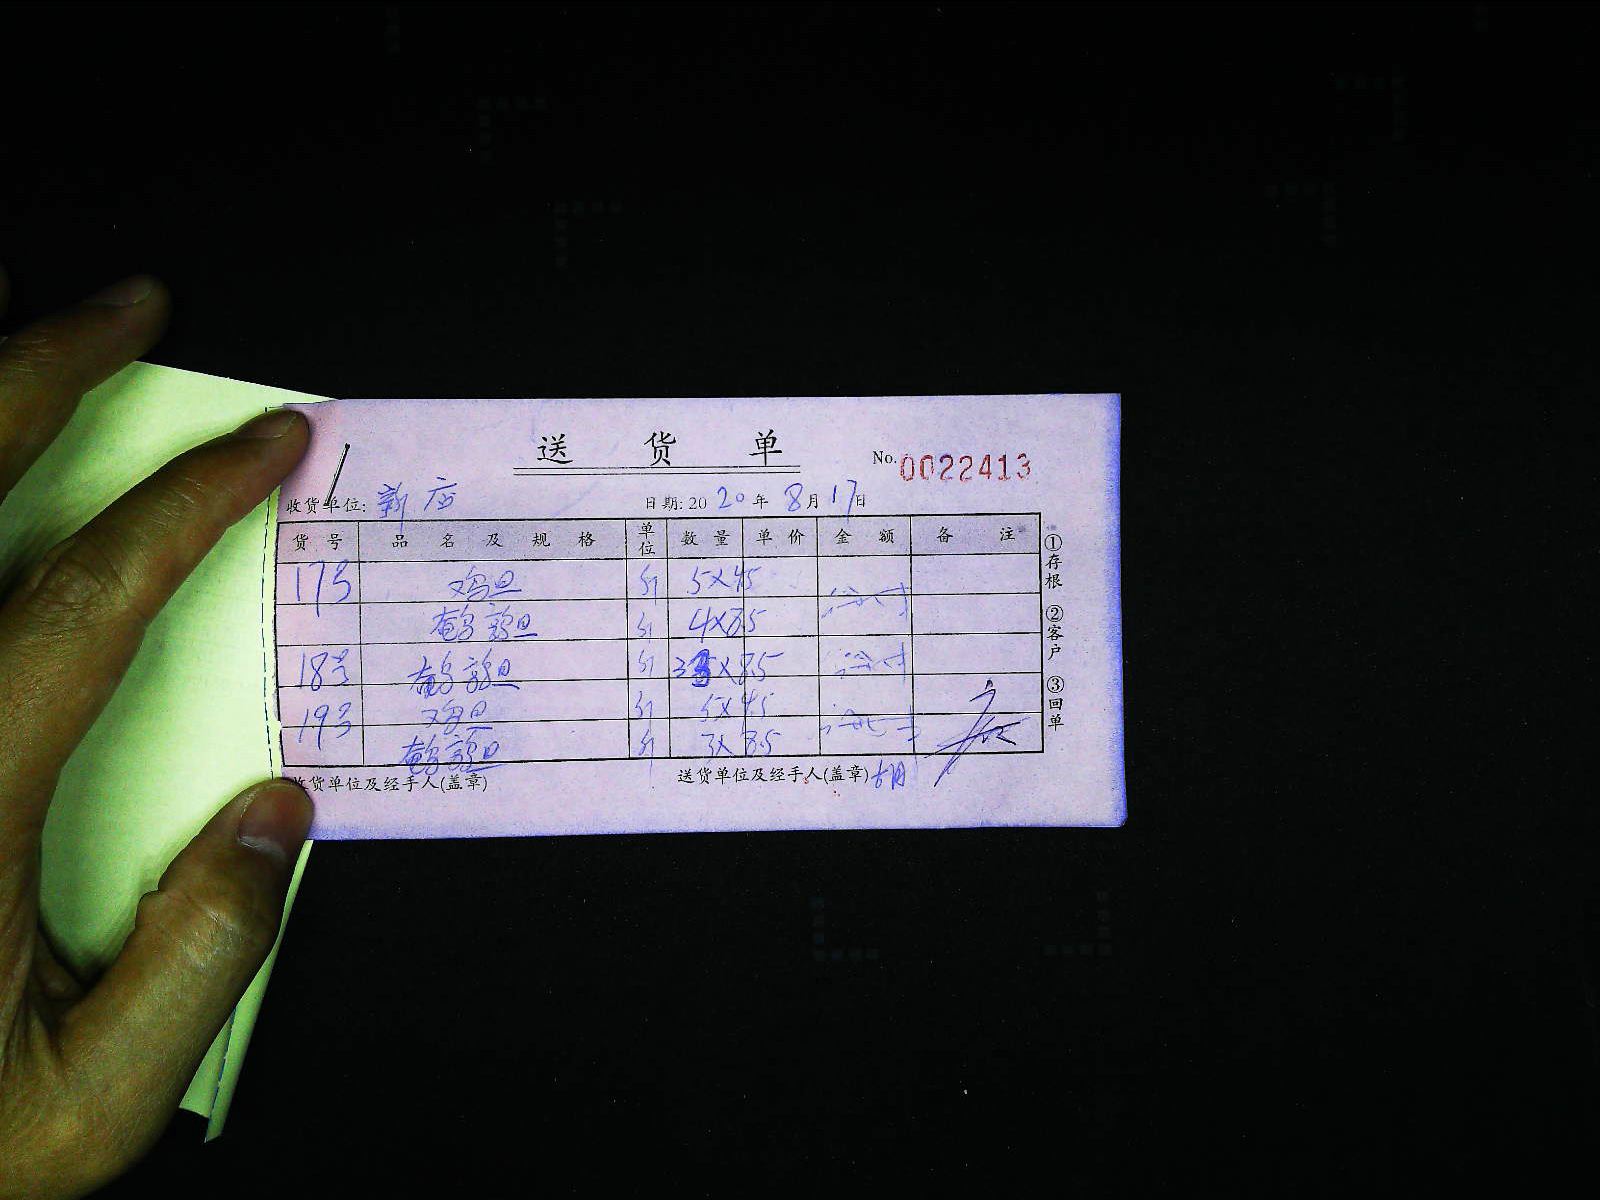 送货单 No.0022413
收货单位: 新店 日期: 2020年8月17日
货号 品名及规格 单位 数量 单价 金额 备注
17号 鸡旦 斤 5×45
鹌鹑旦 斤 4×85
18号 鹌鹑旦 斤 ×85
19号 鸡旦 斤 5×45
鹌鹑旦 斤 3×85
收货单位及经手人(盖章) 送货单位及经手人(盖章)
①存根 ②客户 ③回单